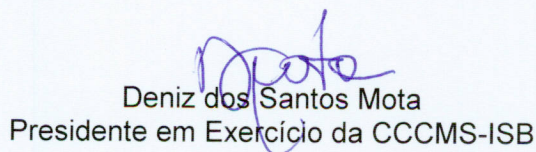 Deniz dos Santos Mota
Presidente em Exercício da CCCMS-ISB